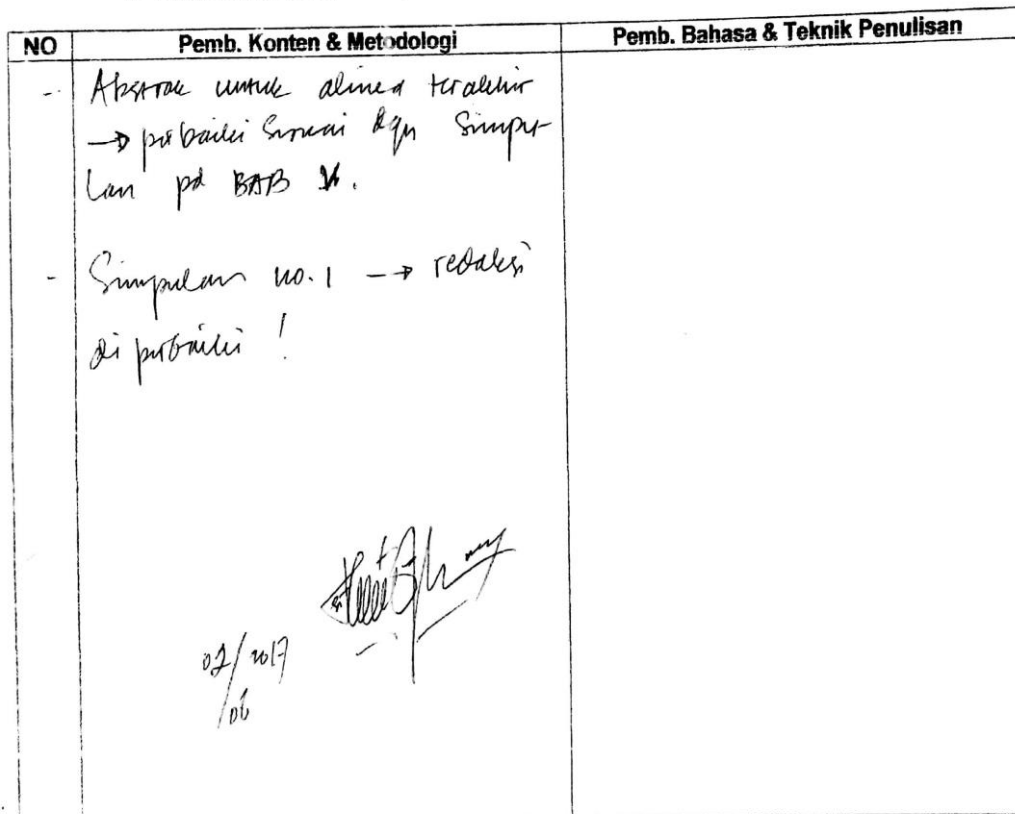 NO Pemb. Konten & Metodologi Pemb. Bahasa & Teknik Penulisan
- Abstrak untuk alinea terakhir
→ perbaiki sesuai dgn Simpu-
lan pd BAB V.
- Simpulan no. 1 → redaksi
di perbaiki !
/2017
/06